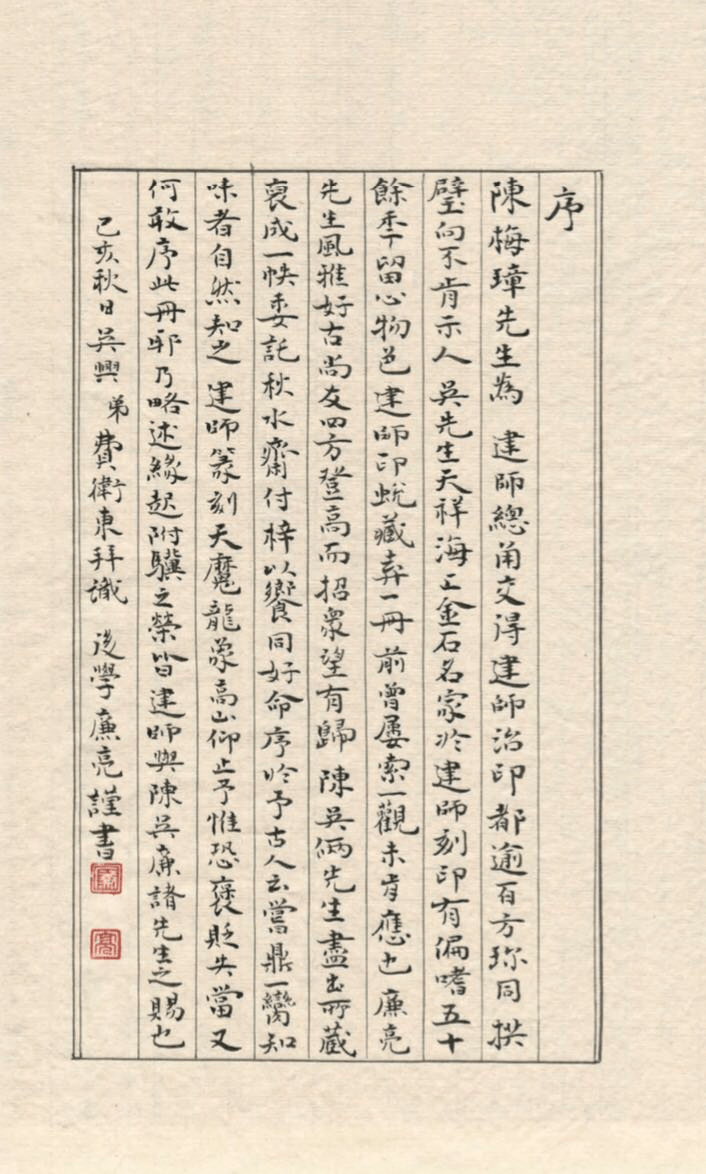 序
陳梅璋先生為 建師總角交得建師治印都逾百方珎同拱
璧向不肯示人 吳先生天祥海上金石名家於建師刻印有偏嗜五十
餘季留心物色建師印蛻藏弆一冊前曾屢索一觀未肯應也 廉亮
先生風雅好古尚友四方登高而招眾望有歸 陳吳兩先生盡出所藏
裒成一帙委託秋水齋付梓以饗同好命序於予古人云嘗鼎一臠知
味者自然知之 建師篆刻天魔龍象高山仰止予惟恐褒貶失當又
何敢序此冊耶乃略述緣起附驥之榮皆建師與陳吳廉諸先生之賜也
己亥秋日吳興弟費衛東拜識 後學廉亮謹書
廉
亮